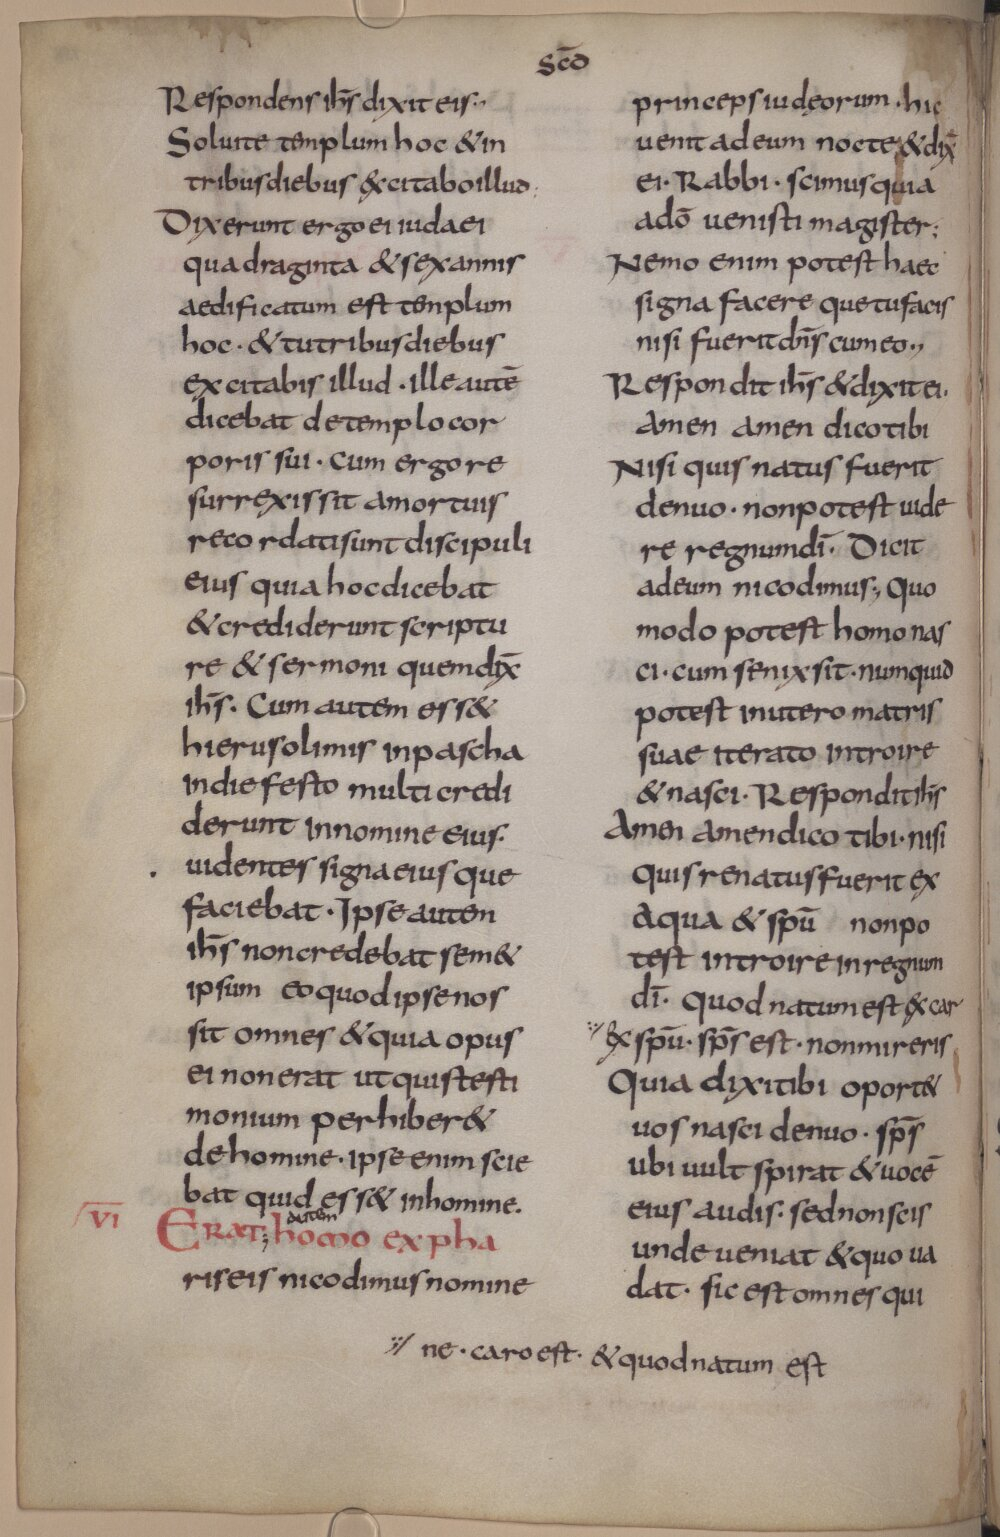 scd̄
Respondens ih̄s dixit eis;
Soluite templum hoc & in
tribus diebus &citabo illud;
Dixerunt ergo ei iudaei
quadraginta & sex annis
aedificatum est templum
hoc · & tu tribus diebus
excitabis illud · ille autē
dicebat de templo cor
poris sui · Cum ergo re
surrexissit a mortuis
recordati sunt discipuli
eius quia hoc dicebat
& crediderunt scriptu
re & sermoni quem dix̄
ih̄s. Cum autem ess&
hierusolimis in pascha
in die festo multi credi
derunt in nomine eius.
uidentes signa eius que
faciebat · Ipse autem
ih̄s non credebat sem&
ipsum eo quod ipse nos
sit omnes & quia opus
ei non erat ut quis testi
monium perhiber&
de homine · ipse enim scie
bat quid ess& in homine.
VI
Erat; autem homo ex pha
riseis nicodimus nomine
princeps iudęorum · hic
uenit ad eum nocte & dix̄
ei · Rabbi · scimus quia
a dō uenisti magister;
Nemo enim potest haec
signa facere que tu facis
nisi fuerit dn̄s cum eo;
Respondit ih̄s & dixit ei.
Amen amen dico tibi
Nisi quis natus fuerit
denuo · non potest uide
re regnum dī. Dicit
ad eum nicodimus; Quo
modo potest homo nas
ci · cum senix sit · numquid
potest in utero matris
suae iterato introire
& nasci · Respondit ih̄s
Amen amen dico tibi · nisi
quis renatus fuerit ex
aqua & spū non po
test introire in regnum
dī. quod natum est ex car
ex spū · sp̄s est · non mireris
Quia dixi tibi oport&
uos nasci denuo · sp̄s
ubi uult spirat & uocē
eius audis · sed non scis
unde ueniat & quo ua
dat · sic est omnes qui
ne · caro est · & quod natum est